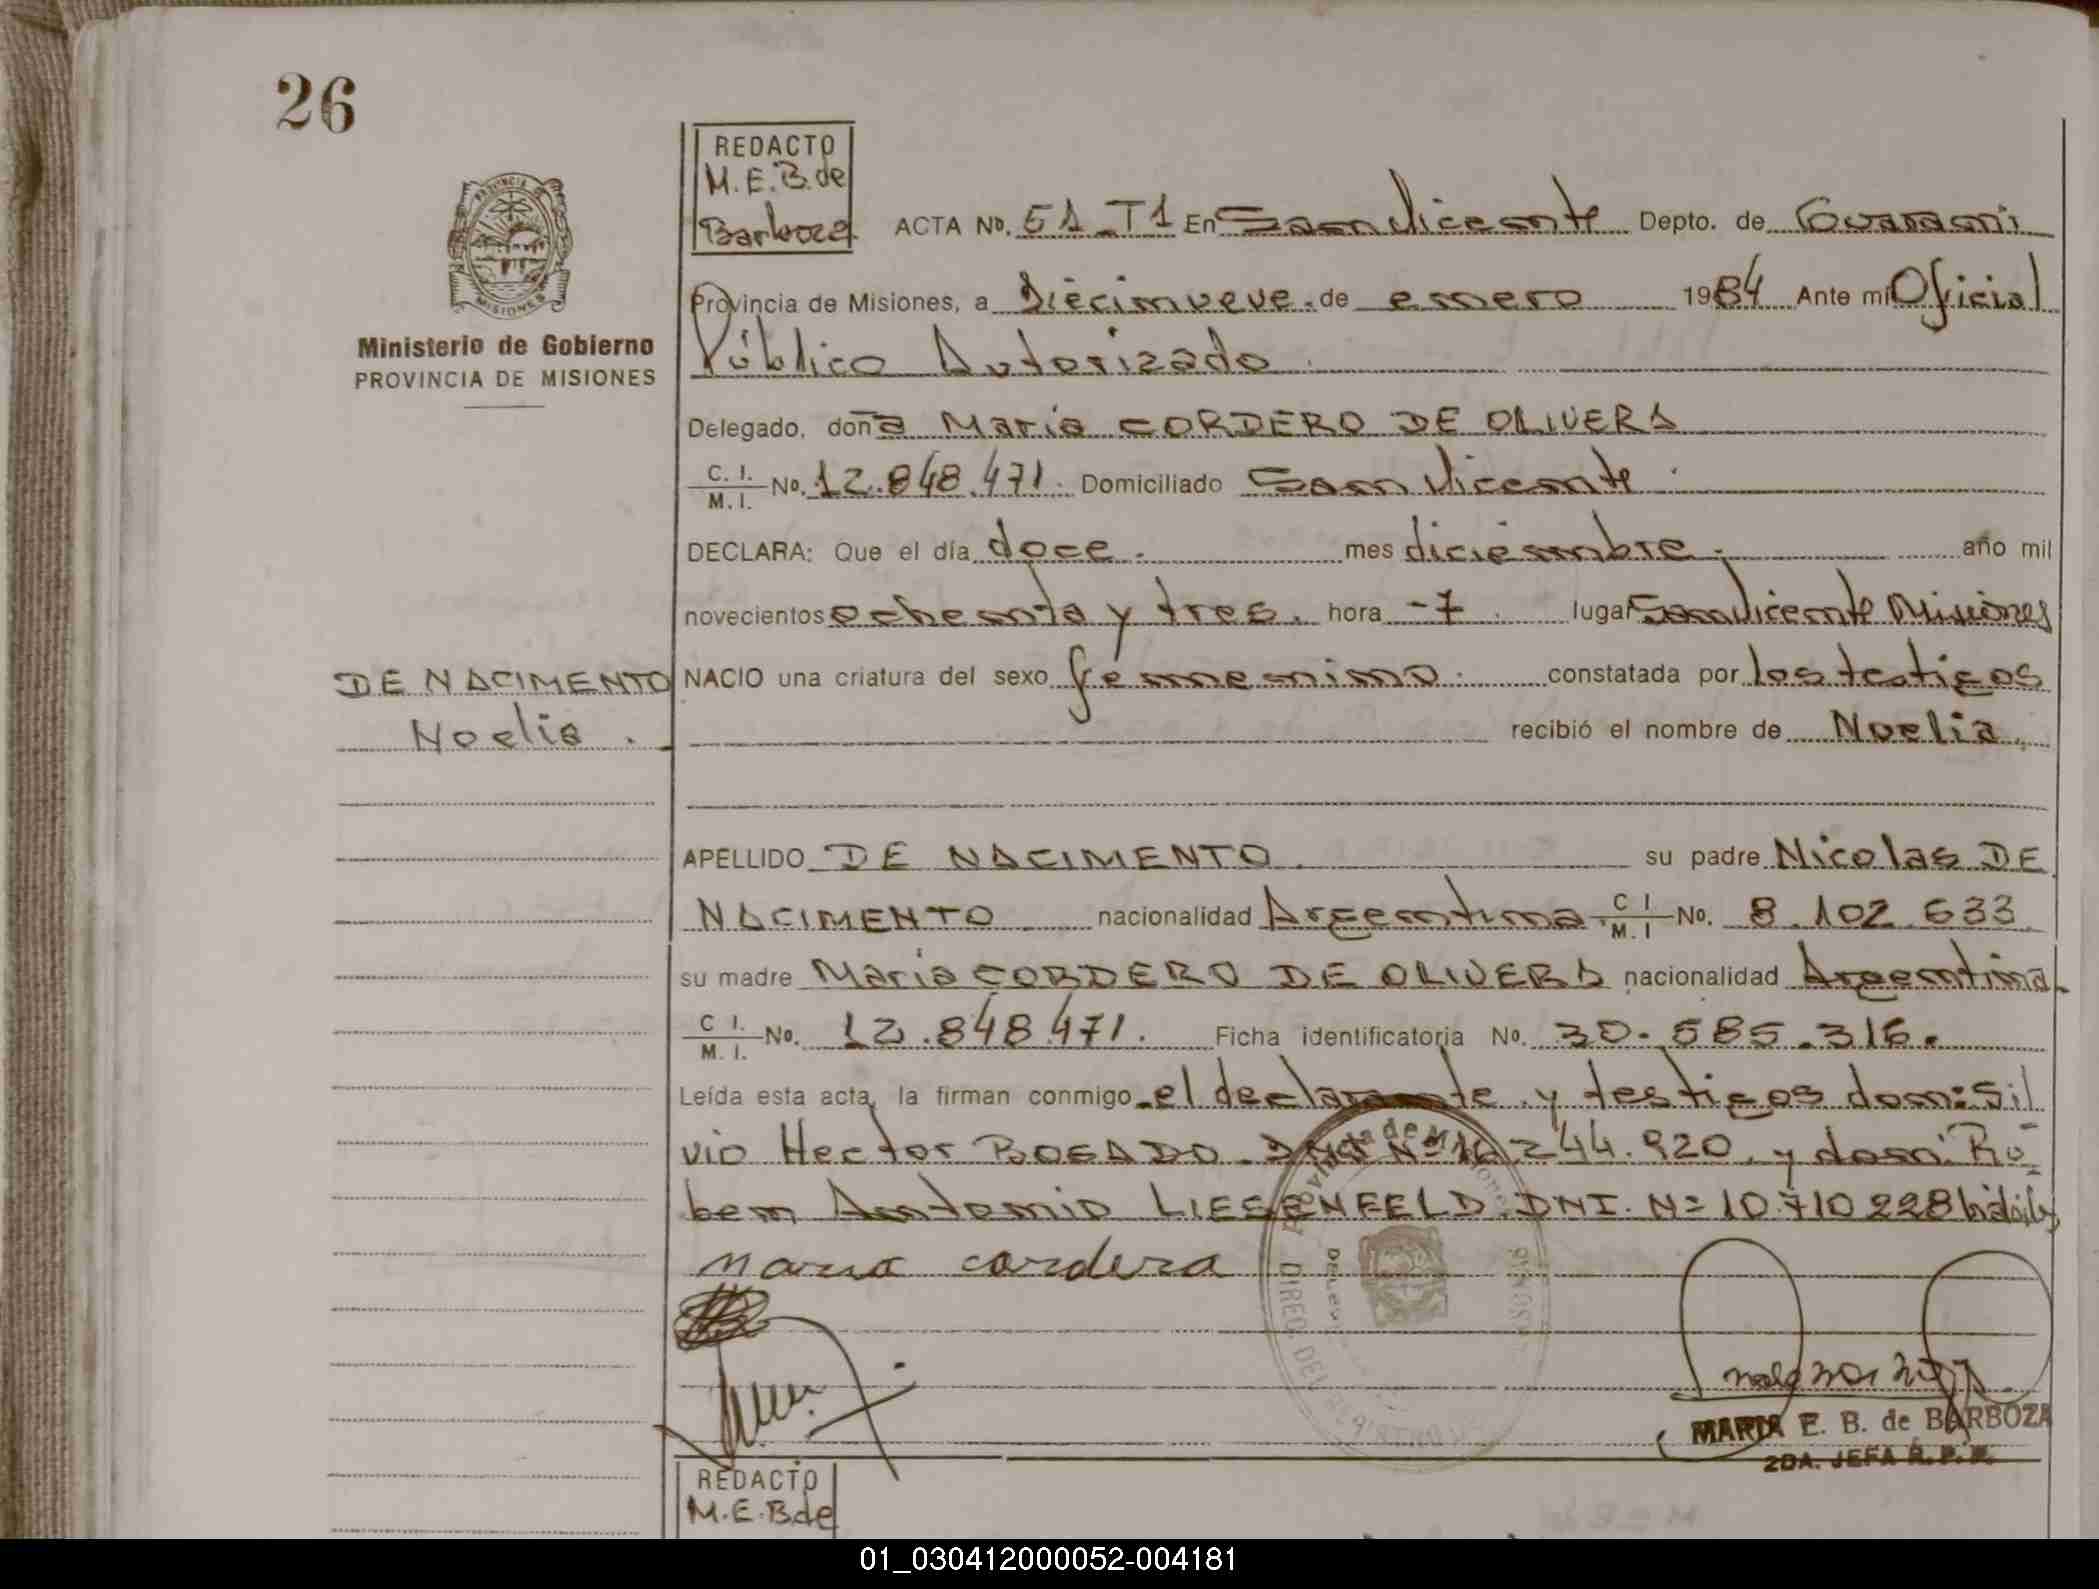 26
REDACTO
M.E.B. de
Barboza
ACTA No. 51_T1 En San Vicente Depto. de Guarani
Provincia de Misiones, a Diecinueve de enero 1984 Ante mi Oficial
Público Autorizado
PROVINCIA DE
MISIONES
Ministerio de Gobierno
PROVINCIA DE MISIONES
Delegado, doña Maria CORDERO DE OLIVERA
C. I.
M. I. No. 12.848.471. Domiciliado San Vicente.
DECLARA: Que el día doce. mes diciembre. año mil
novecientos ochenta y tres. hora -7. lugar San Vicente Misiones
DE NACIMENTO
Noelia.
NACIO una criatura del sexo femenino. constatada por los testigos
recibió el nombre de Noelia.
APELLIDO DE NACIMENTO. su padre Nicolas DE
NACIMENTO nacionalidad Argentina. C I
M. I No. 8.102.633
su madre Maria CORDERO DE OLIVERA nacionalidad Argentina
C I.
M. I. No. 12.848.471. Ficha identificatoria No. 30.585.316.
Leída esta acta, la firman conmigo el declarante y testigos don: Sil
vio Hector ROSADO DNI Nº 16.244.920 y don: Ru-
ben Antonio LIESENFELD. DNI. Nº 10.710.228
maria cordera
MARIA E. B. de BARBOZA
2DA. JEFA R. P. P.
REDACTO
M.E.B.de
01_030412000052-004181